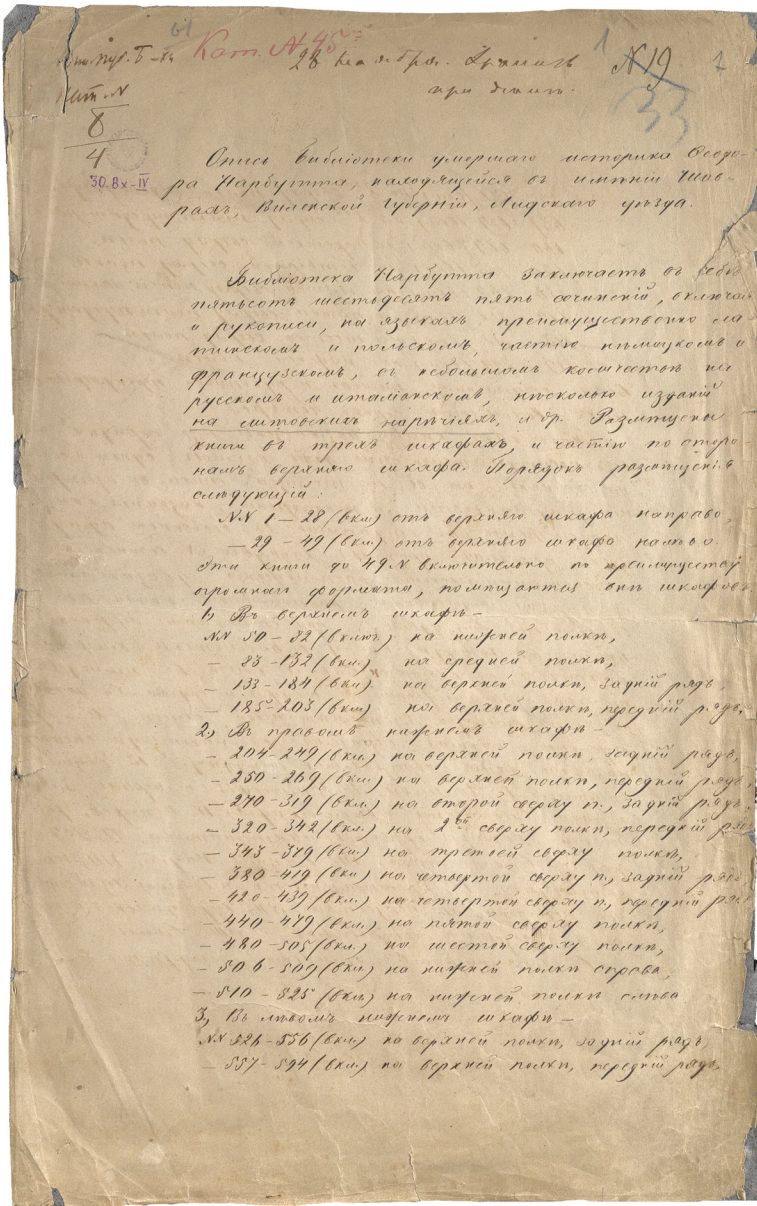 61
Кат. N 45
28 ноября. Хранить
при делах.
1
N 19
33
Кат. N
8
4
30.Bx-IV
Опись Библіотеки умершаго историка Ѳеодо-
ра Нарбутта, находящейся въ имѣніи Шав-
рахъ, Виленской Губерніи, Лидскаго уѣзда.
Библіотека Нарбутта заключаетъ въ себѣ
пятьсотъ шестьдесятъ пять сочиненій, включая
и рукописи, на языкахъ преимущественно ла-
тинскомъ и польскомъ, частію нѣмецкомъ и
французскомъ, въ небольшомъ количествѣ на
русскомъ и италіанскомъ, нѣсколько изданій
на литовскихъ нарѣчіяхъ, и др. Размѣщены
книги въ трехъ шкафахъ, и частію по сторо-
намъ верхняго шкафа. Порядокъ размѣщенія
слѣдующій:
NN 1 – 28 (вкл.) отъ верхняго шкафа направо,
– 29 – 49 (вкл.) отъ верхняго шкафа налѣво.
Эти книги до 49 N включительно по преимуществу
огромнаго формата, помѣщаются внѣ шкафовъ.
1) Въ верхнемъ шкафѣ –
NN 50 – 82 (включ.) на нижней полкѣ,
– 83 – 132 (вкл.) на средней полкѣ,
– 133 – 184 (вкл.) на верхней полкѣ, задній рядъ,
– 185 – 203 (вкл.) на верхней полкѣ, передній рядъ.
2) Въ правомъ нижнемъ шкафѣ –
– 204 – 249 (вкл.) на верхней полкѣ, задній рядъ,
– 250 – 269 (вкл.) на верхней полкѣ, передній рядъ,
– 270 – 319 (вкл.) на второй сверху п., задній рядъ,
– 320 – 342 (вкл.) на 2ой сверху полкѣ, передній ряд
– 343 – 379 (вкл.) на третьей сверху полкѣ,
– 380 – 419 (вкл.) на четвертой сверху п., задній рядъ,
– 420 – 439 (вкл.) на четвертой сверху п., передній ряд
– 440 – 479 (вкл.) на пятой сверху полкѣ,
– 480 – 505 (вкл.) на шестой сверху полкѣ,
– 506 – 509 (вкл.) на нижней полкѣ справа,
– 510 – 525 (вкл.) на нижней полкѣ слѣва
3) Въ лѣвомъ нижнемъ шкафѣ –
NN 526 – 556 (вкл.) на верхней полкѣ, задній рядъ,
– 557 – 594 (вкл.) на верхней полкѣ, передній рядъ.